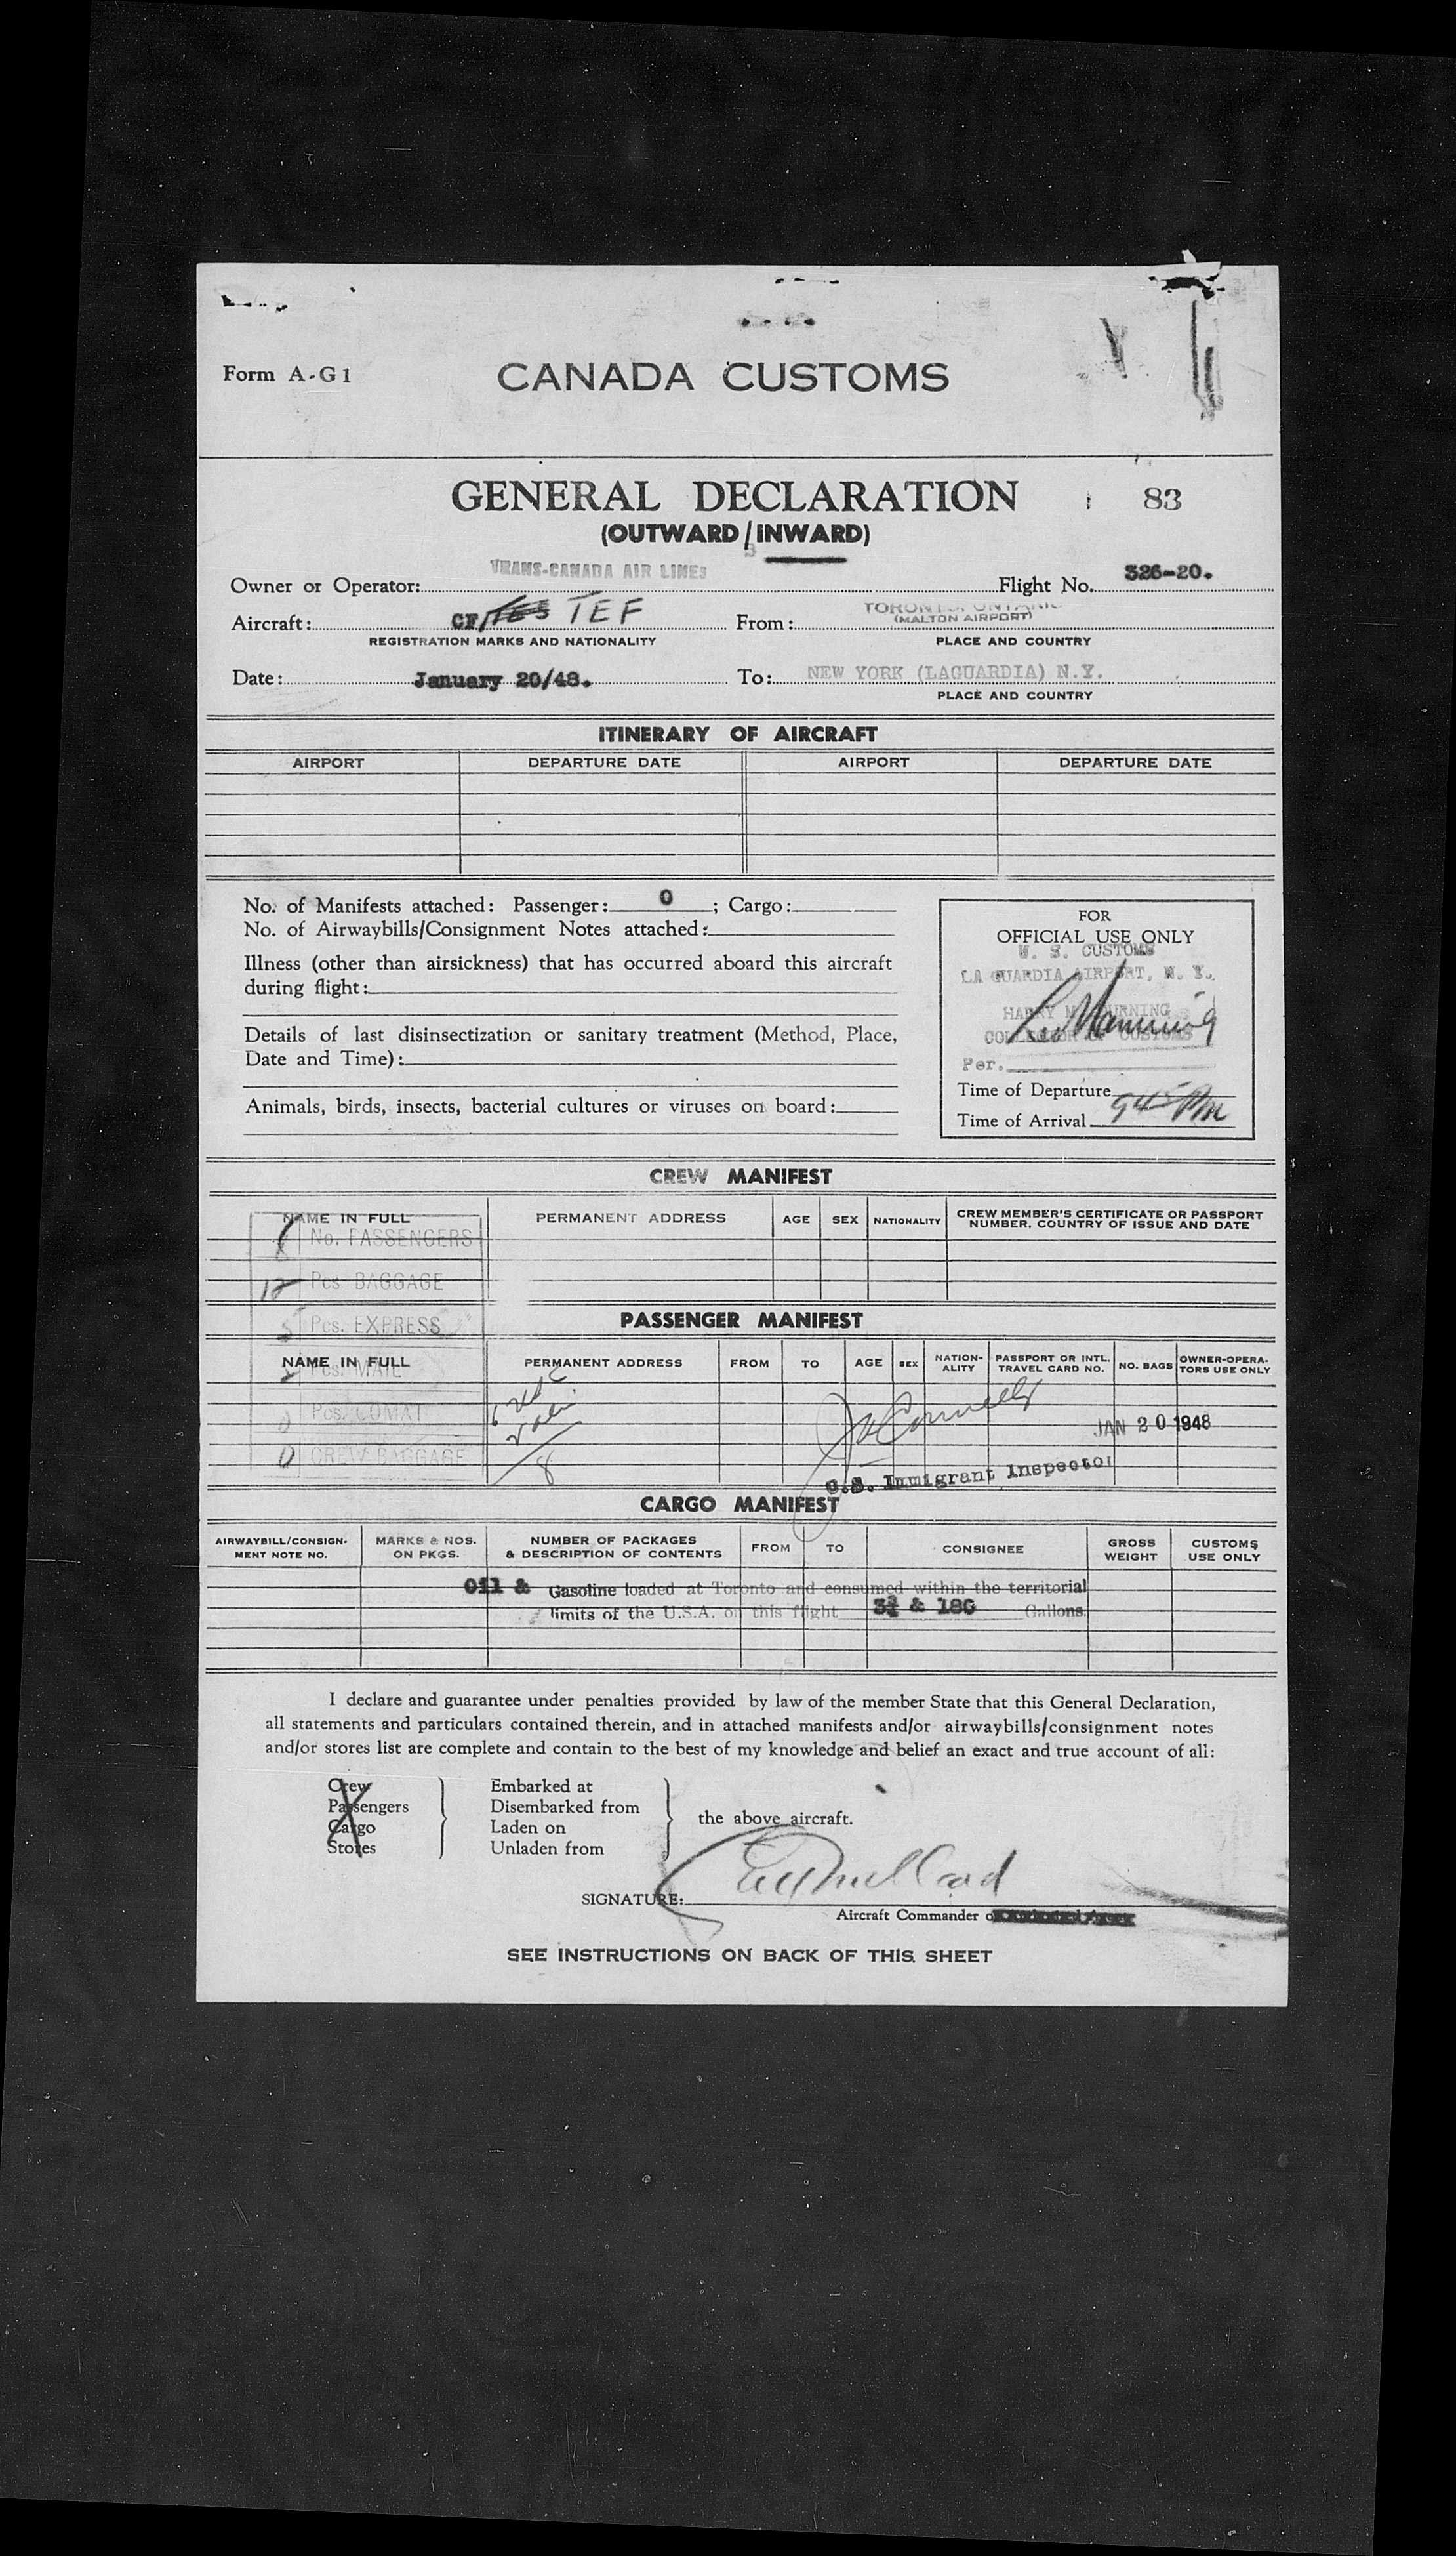 Form A-G1
CANADA CUSTOMS
GENERAL DECLARATION
83
(OUTWARD/INWARD)
Owner or Operator: TRANS-CANADA AIR LINES
Flight No. 326-20.
Aircraft: CF/TES TEF
From: TORONTO, ONTARIO
(MALTON AIRPORT)
REGISTRATION MARKS AND NATIONALITY
PLACE AND COUNTRY
Date: January 20/48.
To: NEW YORK (LAGUARDIA) N.Y.
PLACE AND COUNTRY
ITINERARY OF AIRCRAFT
AIRPORT DEPARTURE DATE AIRPORT DEPARTURE DATE
No. of Manifests attached: Passenger: 0 ; Cargo:
No. of Airwaybills/Consignment Notes attached:
Illness (other than airsickness) that has occurred aboard this aircraft
during flight:
Details of last disinsectization or sanitary treatment (Method, Place,
Date and Time):
Animals, birds, insects, bacterial cultures or viruses on board:
FOR
OFFICIAL USE ONLY
U. S. CUSTOMS
LA GUARDIA AIRPORT, N. Y.
HARRY M. DURNING
COLLECTOR OF CUSTOMS
Per.
Time of Departure
Time of Arrival 945 PM
CREW MANIFEST
NAME IN FULL PERMANENT ADDRESS AGE SEX NATIONALITY CREW MEMBER'S CERTIFICATE OR PASSPORT
NUMBER, COUNTRY OF ISSUE AND DATE
No. PASSENGERS
12 Pcs. BAGGAGE
5 Pcs. EXPRESS
PASSENGER MANIFEST
NAME IN FULL PERMANENT ADDRESS FROM TO AGE SEX NATION-
ALITY PASSPORT OR INTL.
TRAVEL CARD NO. NO. BAGS OWNER-OPERA-
TORS USE ONLY
Pcs. MAIL
0 Pcs. COMAT
0 CREW BAGGAGE
8
JAN 20 1948
U.S. Immigrant Inspector
CARGO MANIFEST
AIRWAYBILL/CONSIGN-
MENT NOTE NO. MARKS & NOS.
ON PKGS. NUMBER OF PACKAGES
& DESCRIPTION OF CONTENTS FROM TO CONSIGNEE GROSS
WEIGHT CUSTOMS
USE ONLY
Oil & Gasoline loaded at Toronto and consumed within the territorial
limits of the U.S.A. on this flight & 180 Gallons
I declare and guarantee under penalties provided by law of the member State that this General Declaration,
all statements and particulars contained therein, and in attached manifests and/or airwaybills/consignment notes
and/or stores list are complete and contain to the best of my knowledge and belief an exact and true account of all:
Crew Embarked at
Passengers Disembarked from
Cargo Laden on
Stores Unladen from
the above aircraft.
SIGNATURE:
Aircraft Commander
SEE INSTRUCTIONS ON BACK OF THIS SHEET